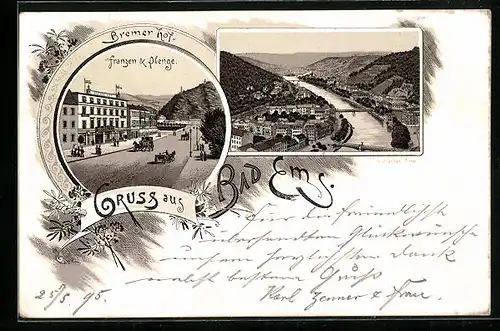 Bremer Hof.
Franzen & Plenge.
GRUSS aus
BAD EMS.
Für die freundlichst
übersandten Glückwünsche
unsern herzlichsten Dank
nebst bestem Gruß
Karl Zenner & Frau.
25/5. 95.